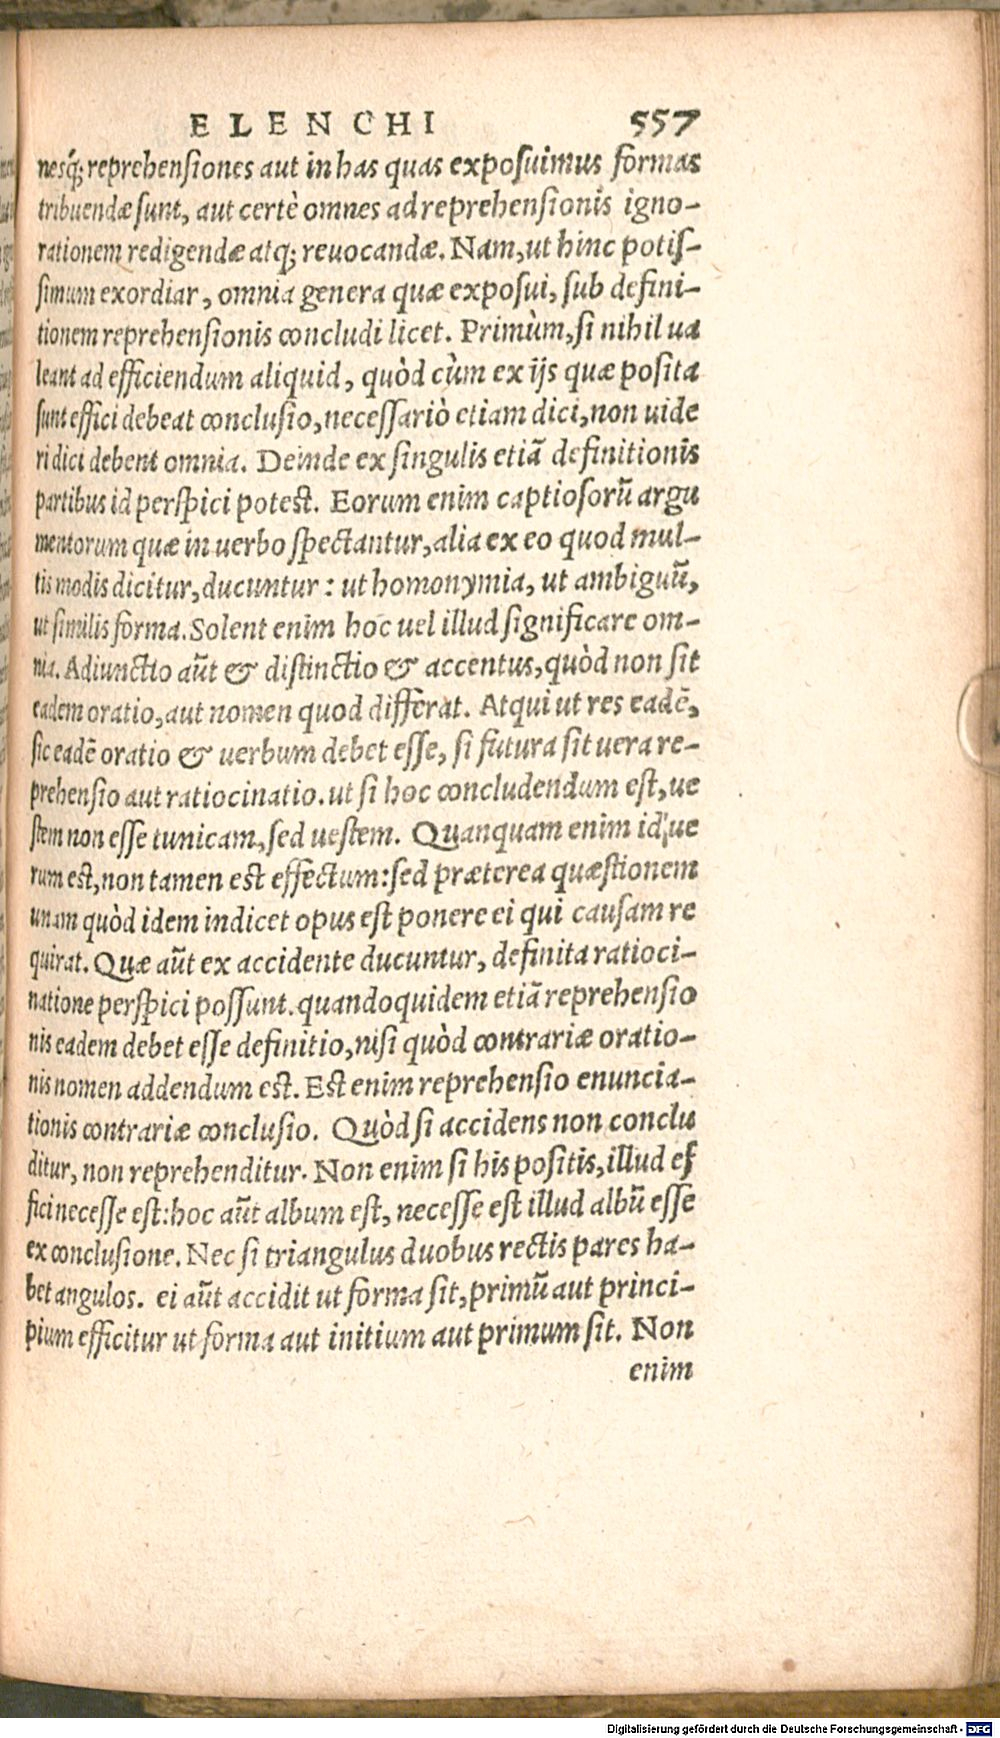 ELENCHI 557
nesq́; reprehensiones aut in has quas exposuimus formas
tribuendæ sunt, aut certè omnes ad reprehensionis igno-
rationem redigendæ atq; reuocandæ. Nam, ut hinc potis-
simum exordiar, omnia genera quæ exposui, sub defini-
tionem reprehensionis concludi licet. Primùm, si nihil ua
leant ad efficiendum aliquid, quòd cùm ex ijs quæ posita
sunt effici debeat conclusio, necessariò etiam dici, non uide
ri dici debent omnia. Deinde ex singulis etiã definitionis
partibus id perspici potest. Eorum enim captiosorũ argu
mentorum quæ in uerbo spectantur, alia ex eo quod mul-
tis modis dicitur, ducuntur: ut homonymia, ut ambiguũ,
ut similis forma. Solent enim hoc uel illud significare om-
nia. Adiunctio aũt & distinctio & accentus, quòd non sit
eadem oratio, aut nomen quod differat. Atqui ut res eadẽ,
sic eadẽ oratio & uerbum debet esse, si futura sit uera re-
prehensio aut ratiocinatio. ut si hoc concludendum est, ue
stem non esse tunicam, sed uestem. Quanquam enim id ue
rum est, non tamen est effectum: sed præterea quæstionem
unam quòd idem indicet opus est ponere ei qui causam re
quirat. Quæ aũt ex accidente ducuntur, definita ratioci-
natione perspici possunt. quandoquidem etiã reprehensio
nis eadem debet esse definitio, nisi quòd contrariæ oratio-
nis nomen addendum est. Est enim reprehensio enuncia-
tionis contrariæ conclusio. Quòd si accidens non conclu
ditur, non reprehenditur. Non enim si his positis, illud ef
fici necesse est: hoc aũt album est, necesse est illud albũ esse
ex conclusione. Nec si triangulus duobus rectis pares ha-
bet angulos. ei aũt accidit ut forma sit, primũ aut princi-
pium efficitur ut forma aut initium aut primum sit. Non
enim
Digitalisierung gefördert durch die Deutsche Forschungsgemeinschaft - DFG